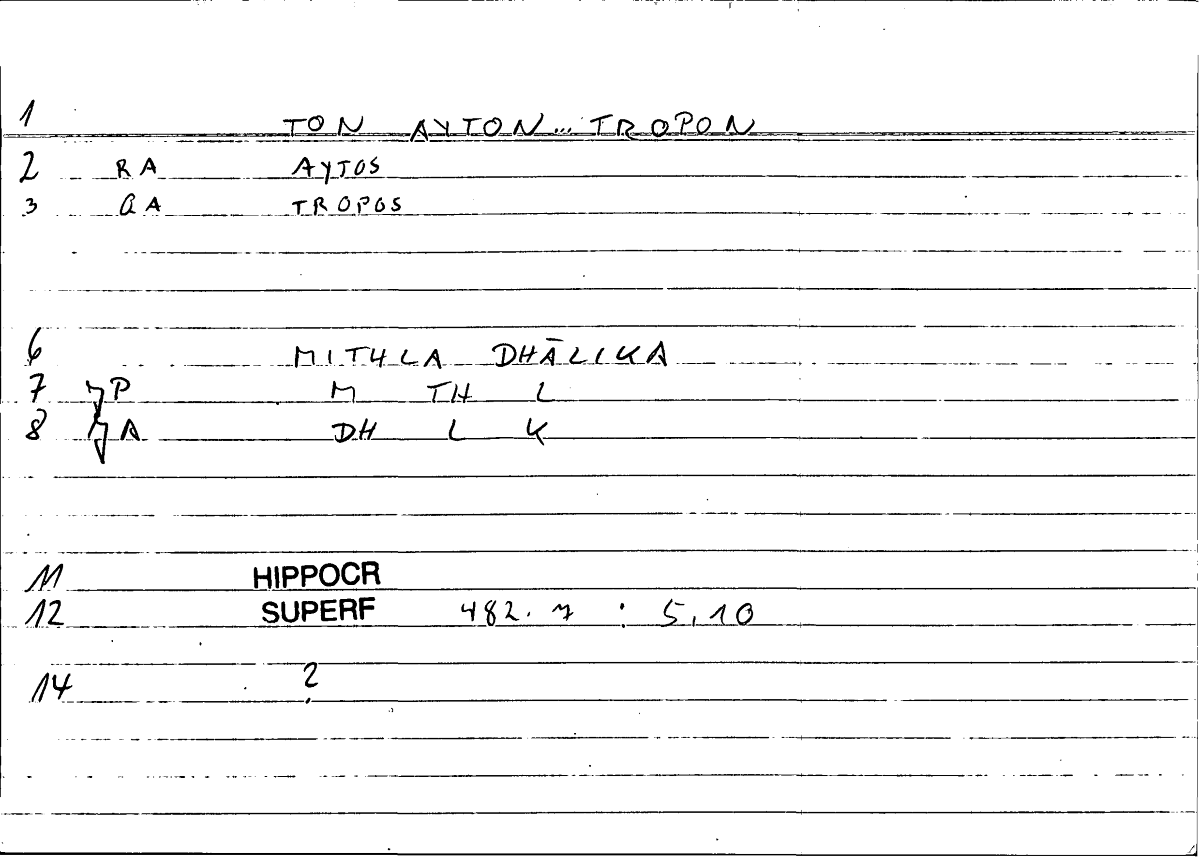 1 TON AYTON... TROPON
2 RA AYTOS
3 QA TROPOS
6 MITHLA DHĀLIKA
7 P M TH L
8 A DH L K
11 HIPPOCR
12 SUPERF 482. 7 : 5,10
14 ?